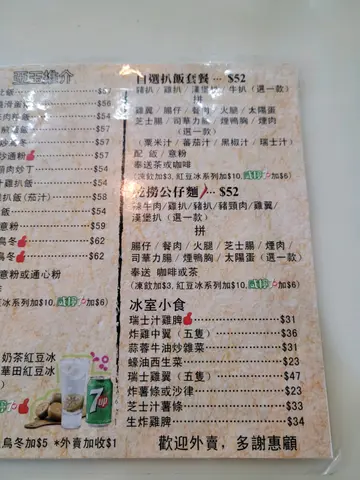 自選扒飯套餐 ··· $52
豬扒 / 雞扒 / 漢堡扒 / 牛扒 (選一款)
拼
雞翼 / 腸仔 / 餐肉 / 火腿 / 太陽蛋
芝士腸 / 司華力腸 / 煙鴨胸 / 煙肉
(選一款)
(粟米汁 / 蕃茄汁 / 黑椒汁 / 瑞士汁)
配 飯 / 意粉
奉送茶或咖啡
(凍飲加$3, 紅豆冰系列加$10, 加$6)
撈公仔麵 ··· $52
牛肉/雞扒/豬扒/豬頸肉/雞翼/
漢堡扒 (選一款)
拼
腸仔 / 餐肉 / 火腿 / 芝士腸 / 煙肉
司華力腸 / 煙鴨胸 / 太陽蛋 (選一款)
奉送 咖啡或茶
(凍飲加$3, 紅豆冰系列加$10, 加$6)
冰室小食
瑞士汁雞脾 $31
炸雞中翼 (五隻) $36
蒜蓉牛油炒雜菜 $31
蠔油西生菜 $23
瑞士雞翼 (五隻) $47
炸薯條或沙律 $23
芝士汁薯條 $33
生炸雞脾 $34
歡迎外賣, 多謝惠顧
$54
$56
$54
$57
$57
炒通粉 $57
炒丁 $54
汁雞扒飯 $54
扒飯(茄汁) $58
飯 $54
$59
烏冬 $62
烏冬 $62
意粉或通心粉
冰系列加$10, 加$6)
奶茶紅豆冰
華田紅豆冰
7up
烏冬加$5 *外賣加收$1